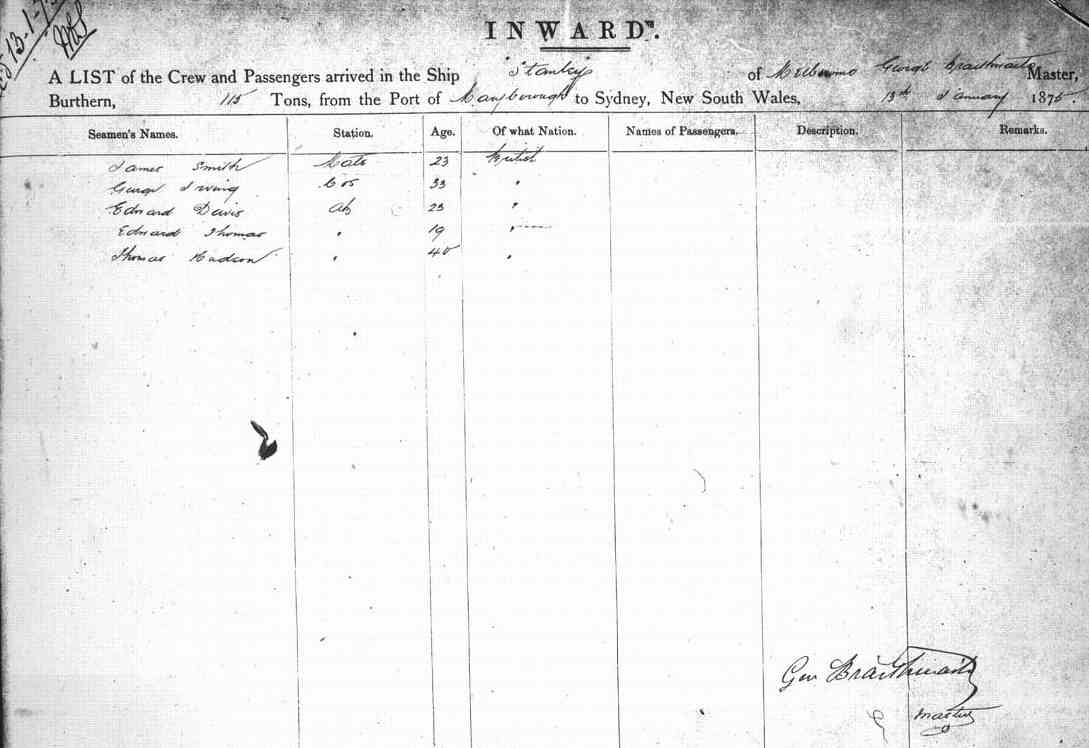 13-1-7
INWARDS.
A LIST of the Crew and Passengers arrived in the Ship Stanley of Melbourne George Braithwaite Master,
Burthern, 115 Tons, from the Port of Maryborough to Sydney, New South Wales, 13th January 1875.
Seamen's Names. Station. Age. Of what Nation. Names of Passengers. Description. Remarks.
James Smith Mate 23 British
George Irving Cos 33 "
Edward Davis Ab 23 "
Edward Thomas " 19 "
Thomas Hudson " 40 "
Geo Braithwaite
Master